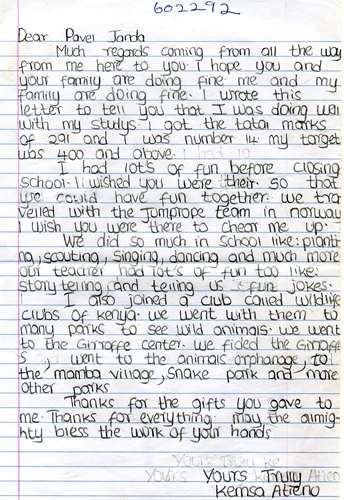 602292
Dear Pavel Janda
Much regards coming from all the way
from me here to you. I hope you and
your family are doing fine. me and my
family are doing fine. I wrote this
letter to tell you that I was doing well
with my studys. I got the total marks
of 291 and I was number 14. my target
was 400 and above.
I had lots of fun before closing
school. I wished you were their. so that
we could have fun together. we tra
velled with the Jumprope team in norway
I wish you were there to chear me up.
We did so much in school like: planti-
ng, scouting, singing, dancing and much more
our teacher had lot's of fun too like:
story telling and telling us fun jokes.
I also joined a club called wildlife
clubs of Kenya. we went with them to
many parks to see wild animals. we went
to the Girraffe center. we fided the Girraffe
s, I went to the animals orphanage, to
the mamba village, snake park and more
other parks
Thanks for the gifts you gave to
me. Thanks for everything. may the almig-
hty bless the work of your hands
Yours Trully
Kemsa Atieno